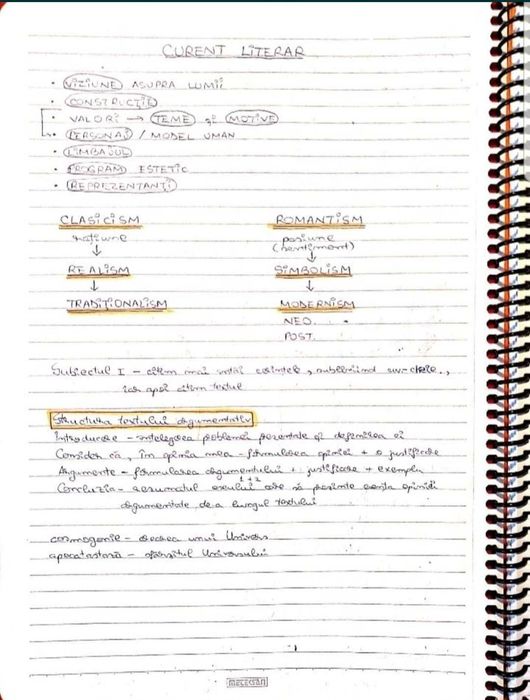 CURENT LITERAR
• VIZIUNE ASUPRA LUMII
• CONSTRUCȚIE
• VALORI → TEME și MOTIVE
• PERSONAJ / MODEL UMAN
• LIMBAJUL
• PROGRAM ESTETIC
• REPREZENTANȚI
CLASICISM ROMANTISM
rațiune pasiune
↓ (sentiment)
↓
REALISM SIMBOLISM
↓ ↓
TRADIȚIONALISM MODERNISM
NEO.
POST.
Subiectul I - citim mai întâi cerințele, subliniind cuv-cheie.,
iar apoi citim textul
Structura textului argumentativ
Introducere - înțelegerea problemei prezentate și definirea ei
Consider că, în opinia mea - formularea opiniei + o justificare
Argumente - formularea argumentului + justificare + exemplu
1+2
Concluzia - rezumatul eseului care să prezinte esența opiniei
argumentate de-a lungul textului
cosmogonie - crearea unui Univers
apocatastază - sfârșitul Universului